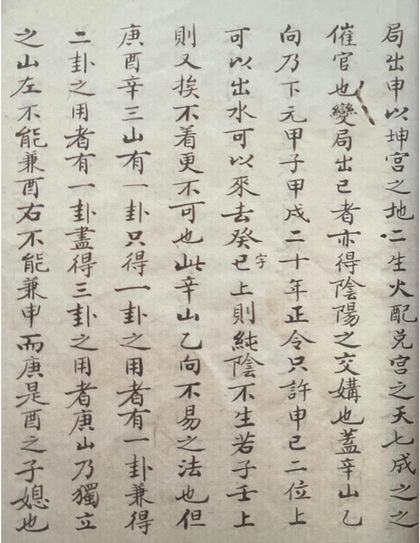 局出申以坤宮之地二生火配兌宮之天七成之之
催官也變局出巳者亦得陰陽之交媾也蓋辛山乙
向乃下元甲子甲戌二十年正令只許申巳二位上
可以出水可以來去癸巳字上則純陰不生若子壬上
則又挨不着更不可也此辛山乙向不易之法也但
庚酉辛三山有一卦只得一卦之用者有一卦兼得
二卦之用者有一卦盡得三卦之用者庚山乃獨立
之山左不能兼酉右不能兼申而庚是酉之子媳也